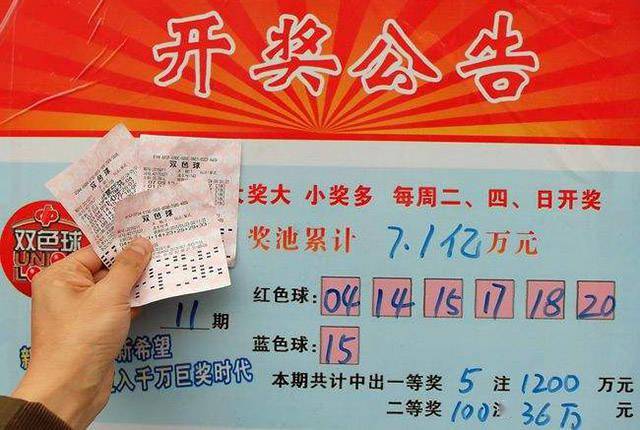 开奖公告
双色球
双色球
双色球
奖大 小奖多 每周二、四、日开奖
双色球
UNION
LOTTO
奖池累计 7.1亿万元
红色球: 04 14 15 17 18 20
11期
蓝色球: 15
新希望
入千万巨奖时代
本期共计中出一等奖 5 注 1200 万元
二等奖 100注 36万 元